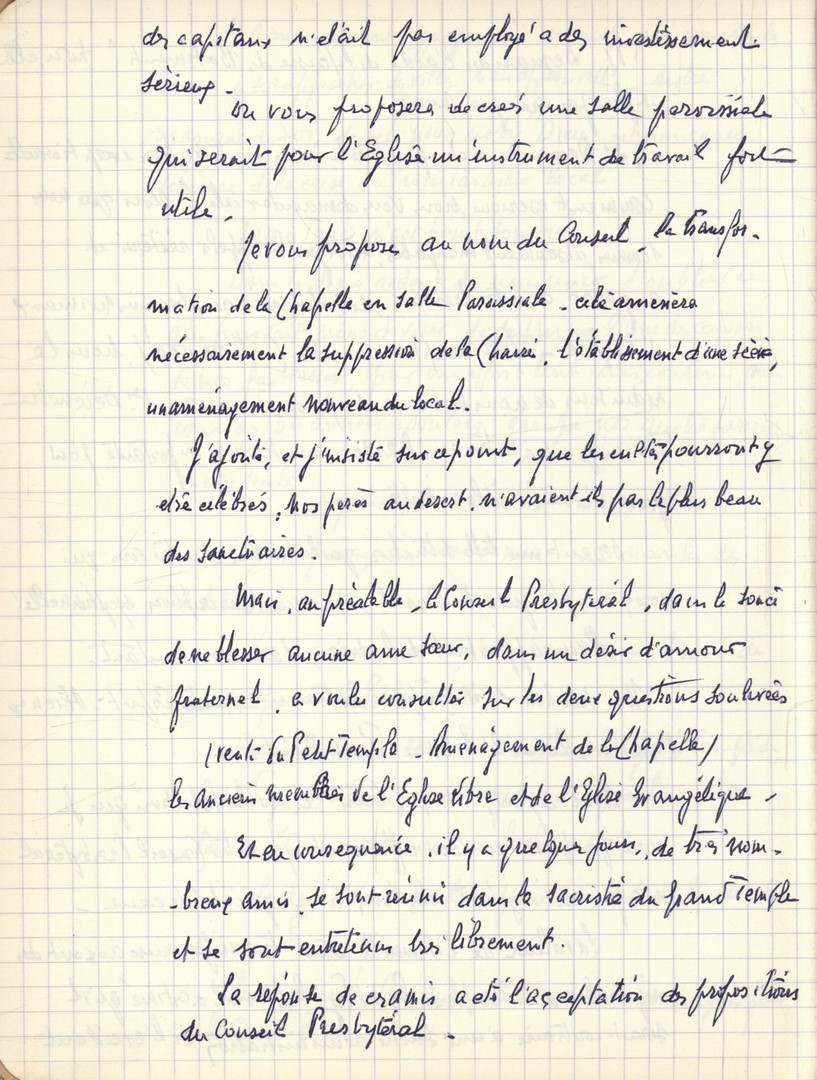 des capitaux n'était pas employé à des investissement
sérieux.
On vous proposera de creér une salle paroissiale
qui serait pour l'Eglise un instrument de travail fort
utile.
Je vous propose, au nom du Conseil, la transfor-
mation de la Chapelle en salle Paroissiale. celà amenèra
nécessairement la suppression de la Chaire, l'établissement d'une scène,
un aménagement nouveau du local.
J'ajoute, et j'insiste sur ce point, que les cultes pourront y
être célébrés, nos pères au desert, n'avaient ils pas le plus beau
des sanctuaires.
Mais, au préalable, le Conseil Presbytéral, dans le souci
de ne blesser aucune ame sœur, dans un désir d'amour
fraternel, a voulu consulter sur les deux questions soulevées
(vente du Petit Temple - Aménagement de la Chapelle)
les anciens membres de l'Eglise libre et de l'Eglise Evangélique.
Et en conséquence, il y a quelques jours, de très nom-
-breux amis, se sont réunis dans la sacristie du grand Temple
et se sont entretenus très librement.
La réponse de ces amis a été l'acceptation des propositions
du Conseil Presbytéral.